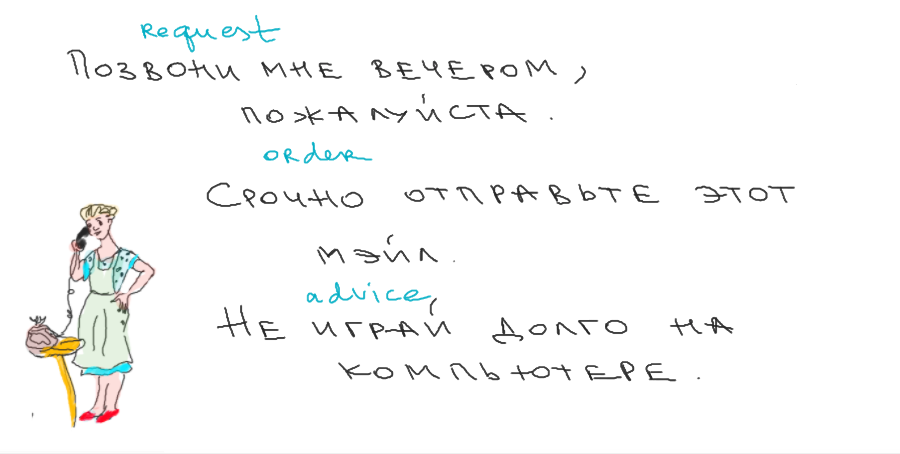 Request
Позвони мне вечером,
пожалуйста.
order
Срочно отправьте этот
мэйл.
advice
Не играй долго на
компьютере.